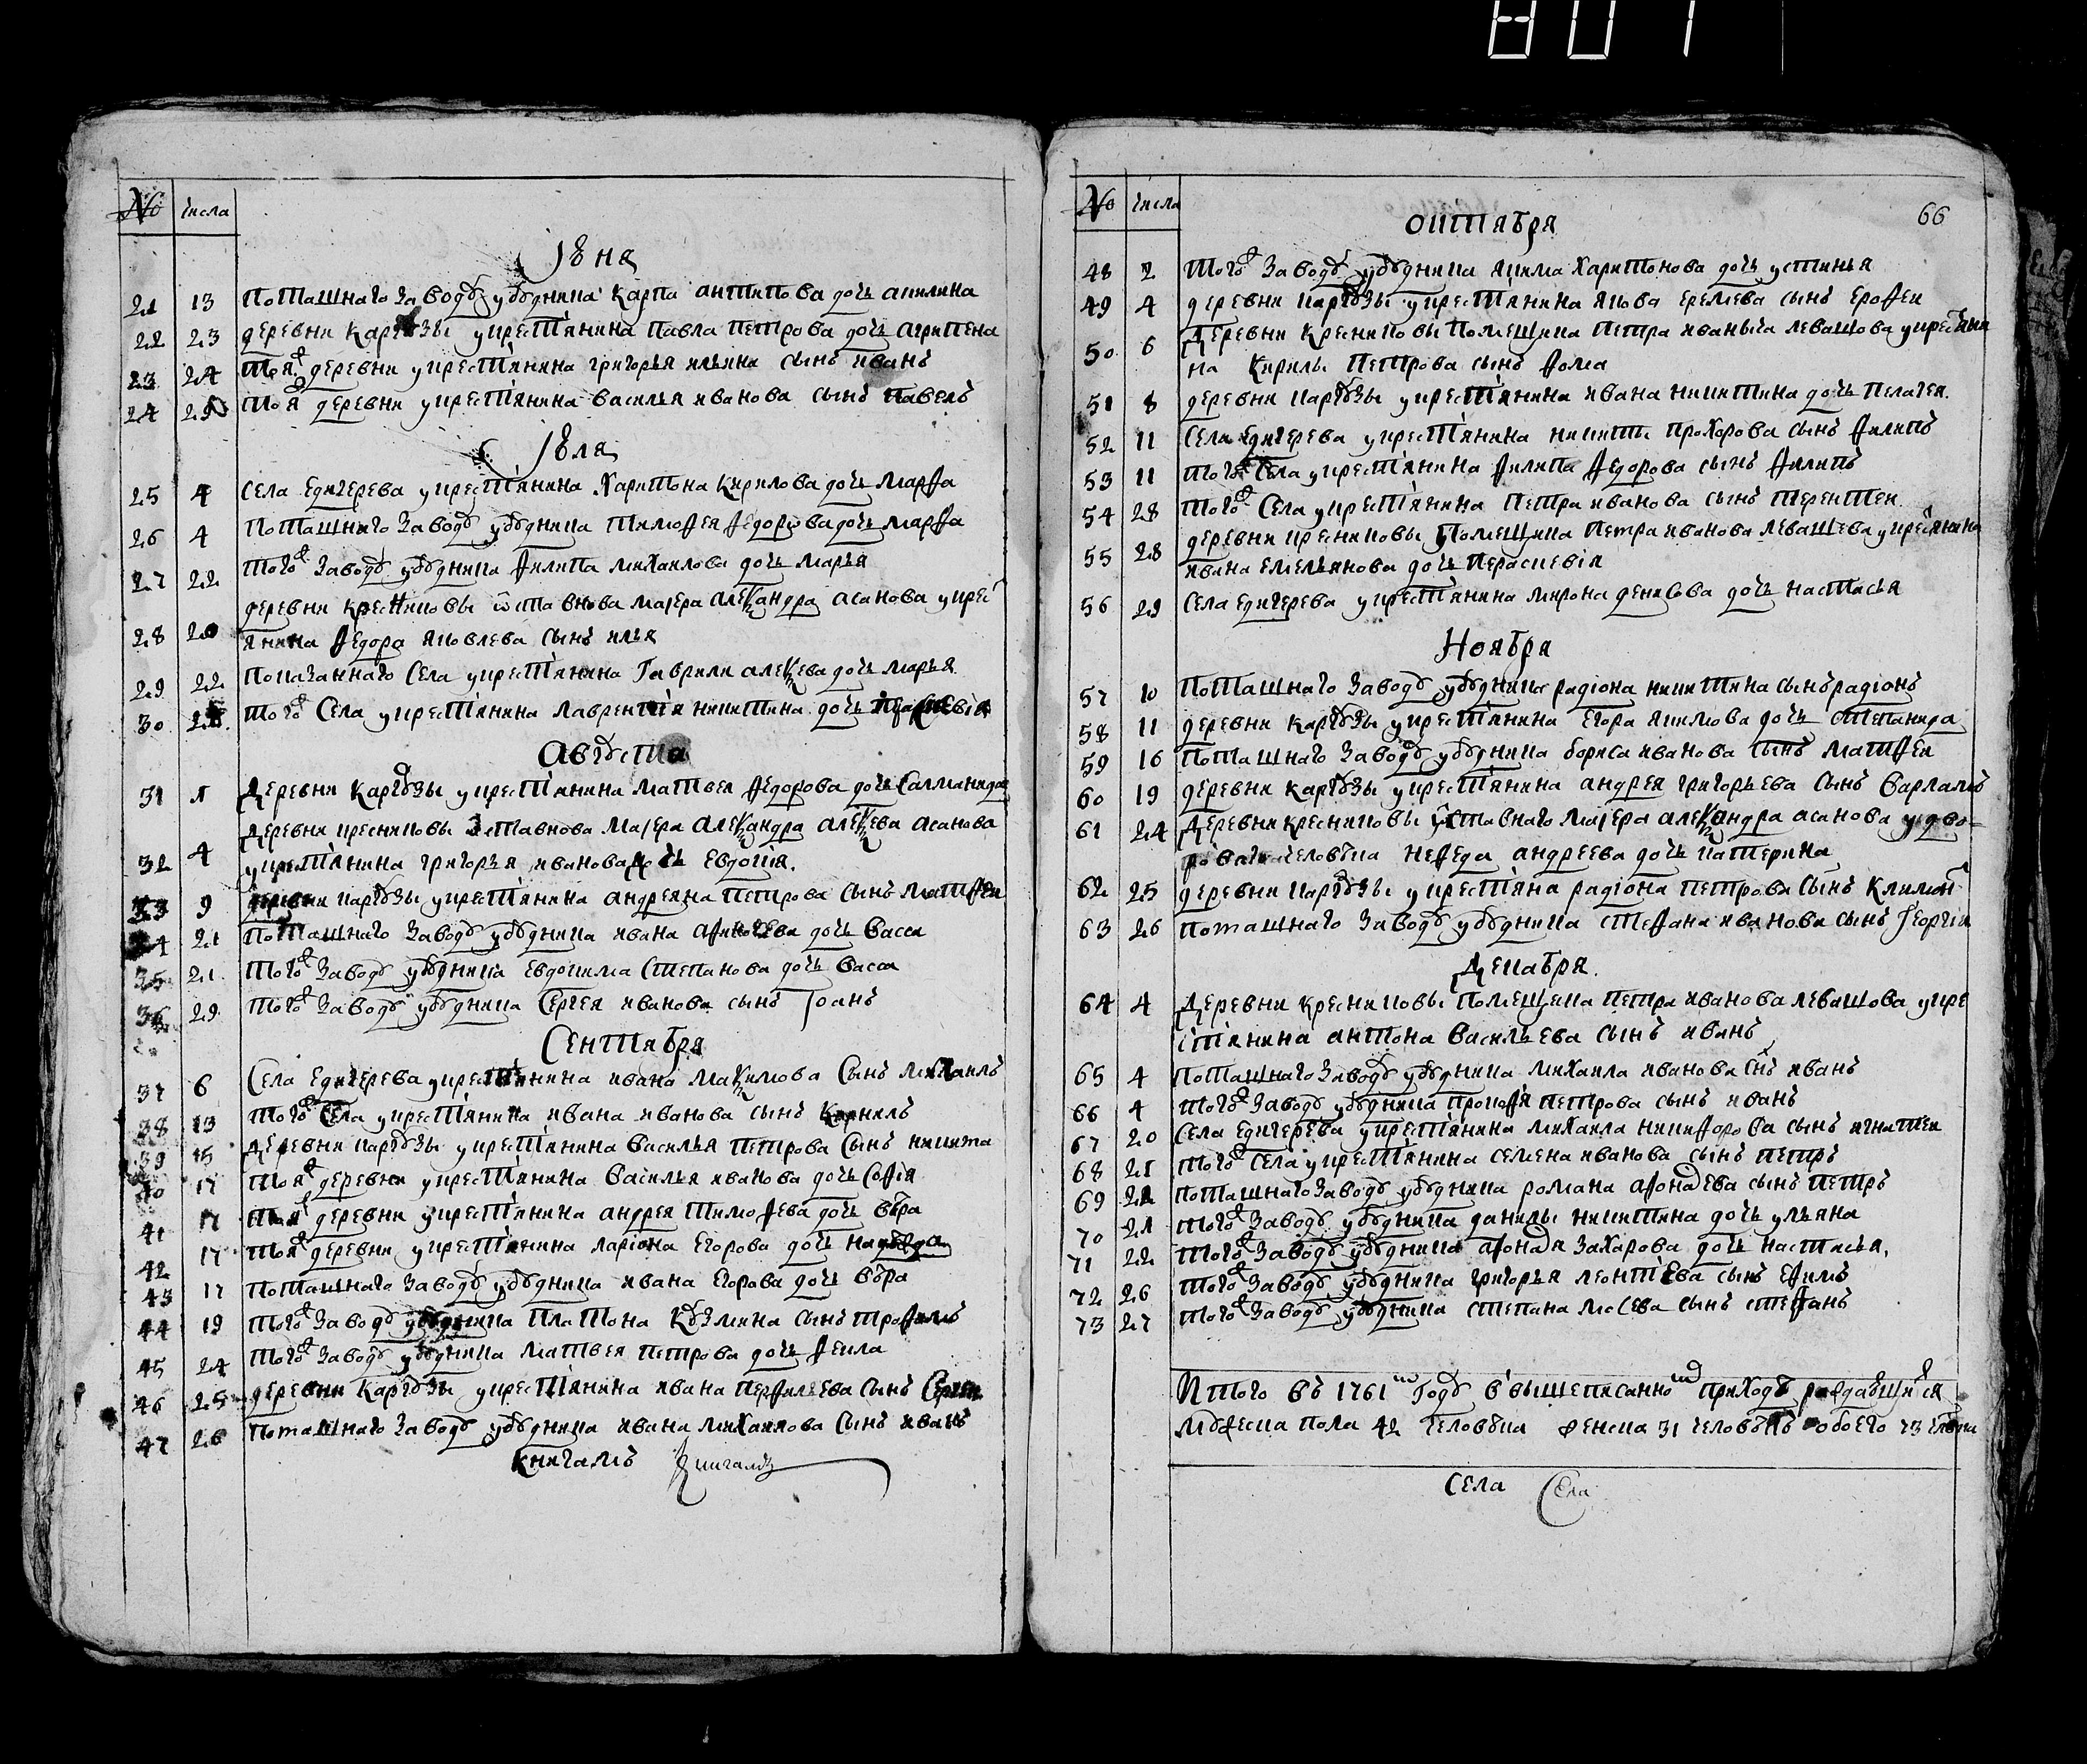 807
№ числа
Іюня
21 13 Поташнаго заводу убудника карпа антипова дочь акилина
22 23 деревни каргузы у крестьянина павла петрова дочь агрипена
23 24 тояж деревни у крестьянина григорья ильина сынъ иванъ
24 25 тояж деревни у крестьянина василья иванова сынъ павелъ
Іюля
25 4 села едичерева у крестьянина харитона кирилова дочь марфа
26 4 Поташнаго заводу убудника тимофея федорова дочь марфа
27 22 тогож заводу убудника филипа михаилова дочь марья
деревни креснковы ѿставнова маіера алеѯандра асанова у крест
28 20 янина федора яковлева сынъ илья
29 22 Показаннаго села у крестьянина гаврили алеѯева дочь марья
30 тогож села у крестьянина лаврентія никитина дочь
Августа
31 1 Деревни каргузы у крестьянина матвея федорова дочь саламанида
Деревни кресниковы ѿставнова маіера алеѯандра алеѯева асанова
32 4 у крестьянина григорья иванова дочь евдокія.
33 9 деревни каргузы у крестьянина андреяна петрова сынъ матфеи
34 21 Поташнаго заводу убудника ивана дочь васса
35 21 тогож заводу убудника евдокима степанова дочь васса
36 29 тогож заводу убудника сергея иванова сынъ Іоанъ
Сентября
37 6 Села едичерева у крестьянина ивана маѯимова сынъ михаилъ
38 13 тогож села у крестьянина ивана иванова сынъ корнилъ
39 15 Деревни каргузы у крестьянина василья петрова сынъ никита
40 17 тояж деревни у крестьянина василья иванова дочь софія
41 17 тояж деревни у крестьянина андрея тимофева дочь вѣра
42 17 тояж деревни у крестьянина ларіона егорова дочь надѣжда
43 17 Поташнаго заводу убудника ивана егорова дочь вѣра
44 19 тогож заводу убудника платона кузмина сынъ трофимъ
45 24 тогож заводу убудника матвея петрова дочь фекла
46 25 деревни каргузы у крестьянина ивана перфильева сынъ сергеи
47 26 поташнаго заводу убудника ивана михаилова сынъ иванъ
книгамъ книгамъ
№ числа
октября
66
48 2 тогож заводу убудника якима харитонова дочь устинья
49 4 деревни каргузы у крестьянина якова еремева сынъ ерофеи
50 6 Деревни кресниковы помещика петра иваныча левашова у крестьяни
на кирилы петрова сынъ фома
51 8 деревни каргузы у крестьянина ивана никитина дочь пелагея.
52 11 села едичерева у крестьянина никиты прохорова сынъ филипъ
53 11 тогож села у крестьянина филипа федорова сынъ филипъ
54 28 тогож села у крестьянина петра иванова сынъ терентеи
55 28 деревни кресниковы помещика петра иванова левашева у крестьянина
ивана емельянова дочь перасковія
56 29 села едичерева у крестьянина мирона денисова дочь настасья
Ноября
57 10 поташнаго заводу убудника радіона никитина сынъ радіонъ
58 11 деревни каргузы у крестьянина егора якимова дочь степанида
59 16 поташнаго заводу убудника бориса иванова сынъ матфеи
60 19 деревни каргузы у крестьянина андрея григорьева сынъ варламъ
61 24 Деревни кресниковы ѿставнаго маіера алеѯандра асанова у дво-
роваго человѣка нефеда андреева дочь катерина
62 25 деревни каргузы у крестьяна радіона петрова сынъ климонт
63 26 поташнаго заводу убудника стефана иванова сынъ георгіи
Декабря.
64 4 Деревни кресниковы помещика петра иванова левашова у кре
стьянина антона васильева сынъ иванъ
65 4 поташнаго заводу убудника михаила иванова снъ иванъ
66 4 тогож заводу убудника прокофя петрова сынъ иванъ
67 20 села едичерева у крестьянина михаила никифорова сынъ игнатеи
68 21 тогож села у крестьянина семена иванова сынъ петръ
69 22 поташнаго заводу убудника романа афонасева сынъ петръ
70 21 тогож заводу убудника данилы никитина дочь ульяна
71 22 тогож заводу убудника афонася захарова дочь настасья,
72 26 тогож заводу убудника григорья леонтіева сынъ ефимъ
73 27 тогож заводу убудника степана мосева сынъ стефанъ
Итого въ 1761м году в вышеписанном приходѣ раждавшихся
мужеска пола 42 человѣка женска 31 человѣкъ обоего 73 члвка
Села Села